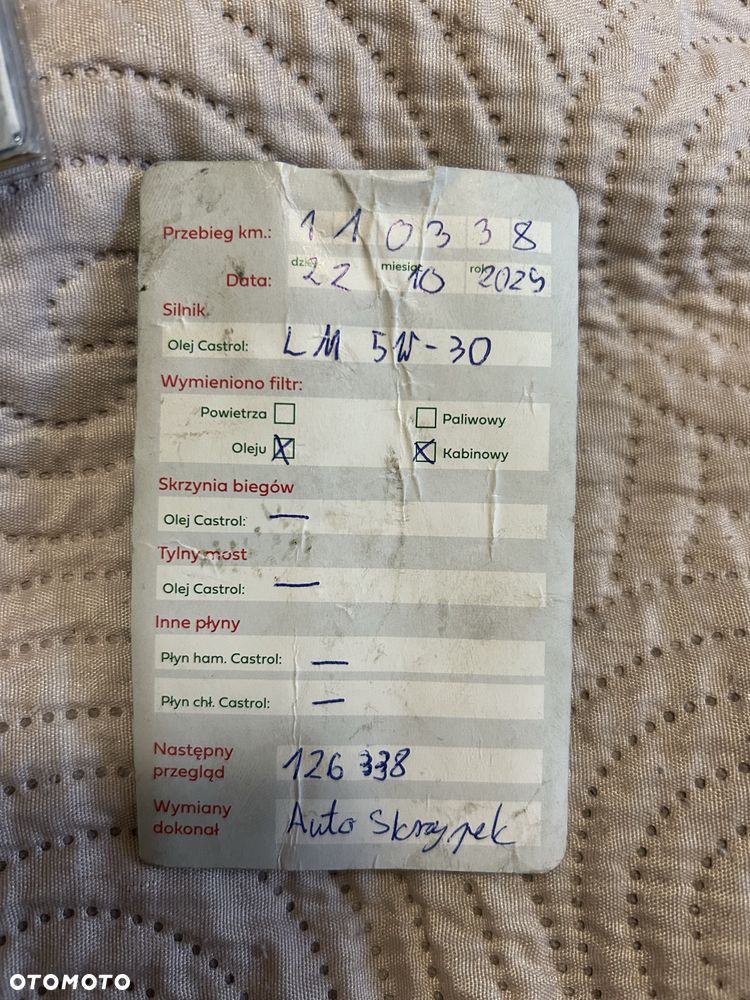 Przebieg km.: 110338
dzień miesiąc rok
Data: 22 10 2025
Silnik
Olej Castrol: LM 5W-30
Wymieniono filtr:
Powietrza Paliwowy
Oleju X Kabinowy X
Skrzynia biegów
Olej Castrol: —
Tylny most
Olej Castrol: —
Inne płyny
Płyn ham. Castrol: —
Płyn chł. Castrol: —
Następny
przegląd 126 338
Wymiany
dokonał Auto Skrzypek
OTOMOTO